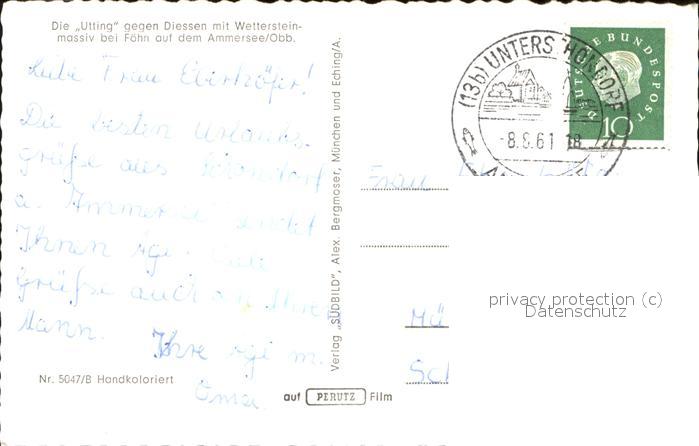 Die „Utting" gegen Diessen mit Wetterstein-
massiv bei Föhn auf dem Ammersee/Obb.
Liebe Frau Eberhöfer!
Die besten Urlaubs-
grüße aus Schondorf
a. Ammersee sendet
Ihnen Ihre
grüße auch an Ihren
Mann.
Ihre m.
Oma.
Nr. 5047/B Handkoloriert
Verlag „SÜDBILD", Alex. Bergmoser, München und Eching/A.
auf PERUTZ Film
(13b) UNTERSCHONDORF
-8.6.61 18
DEUTSCHE BUNDESPOST
10
Frau
Mü
Sch
privacy protection (c)
Datenschutz